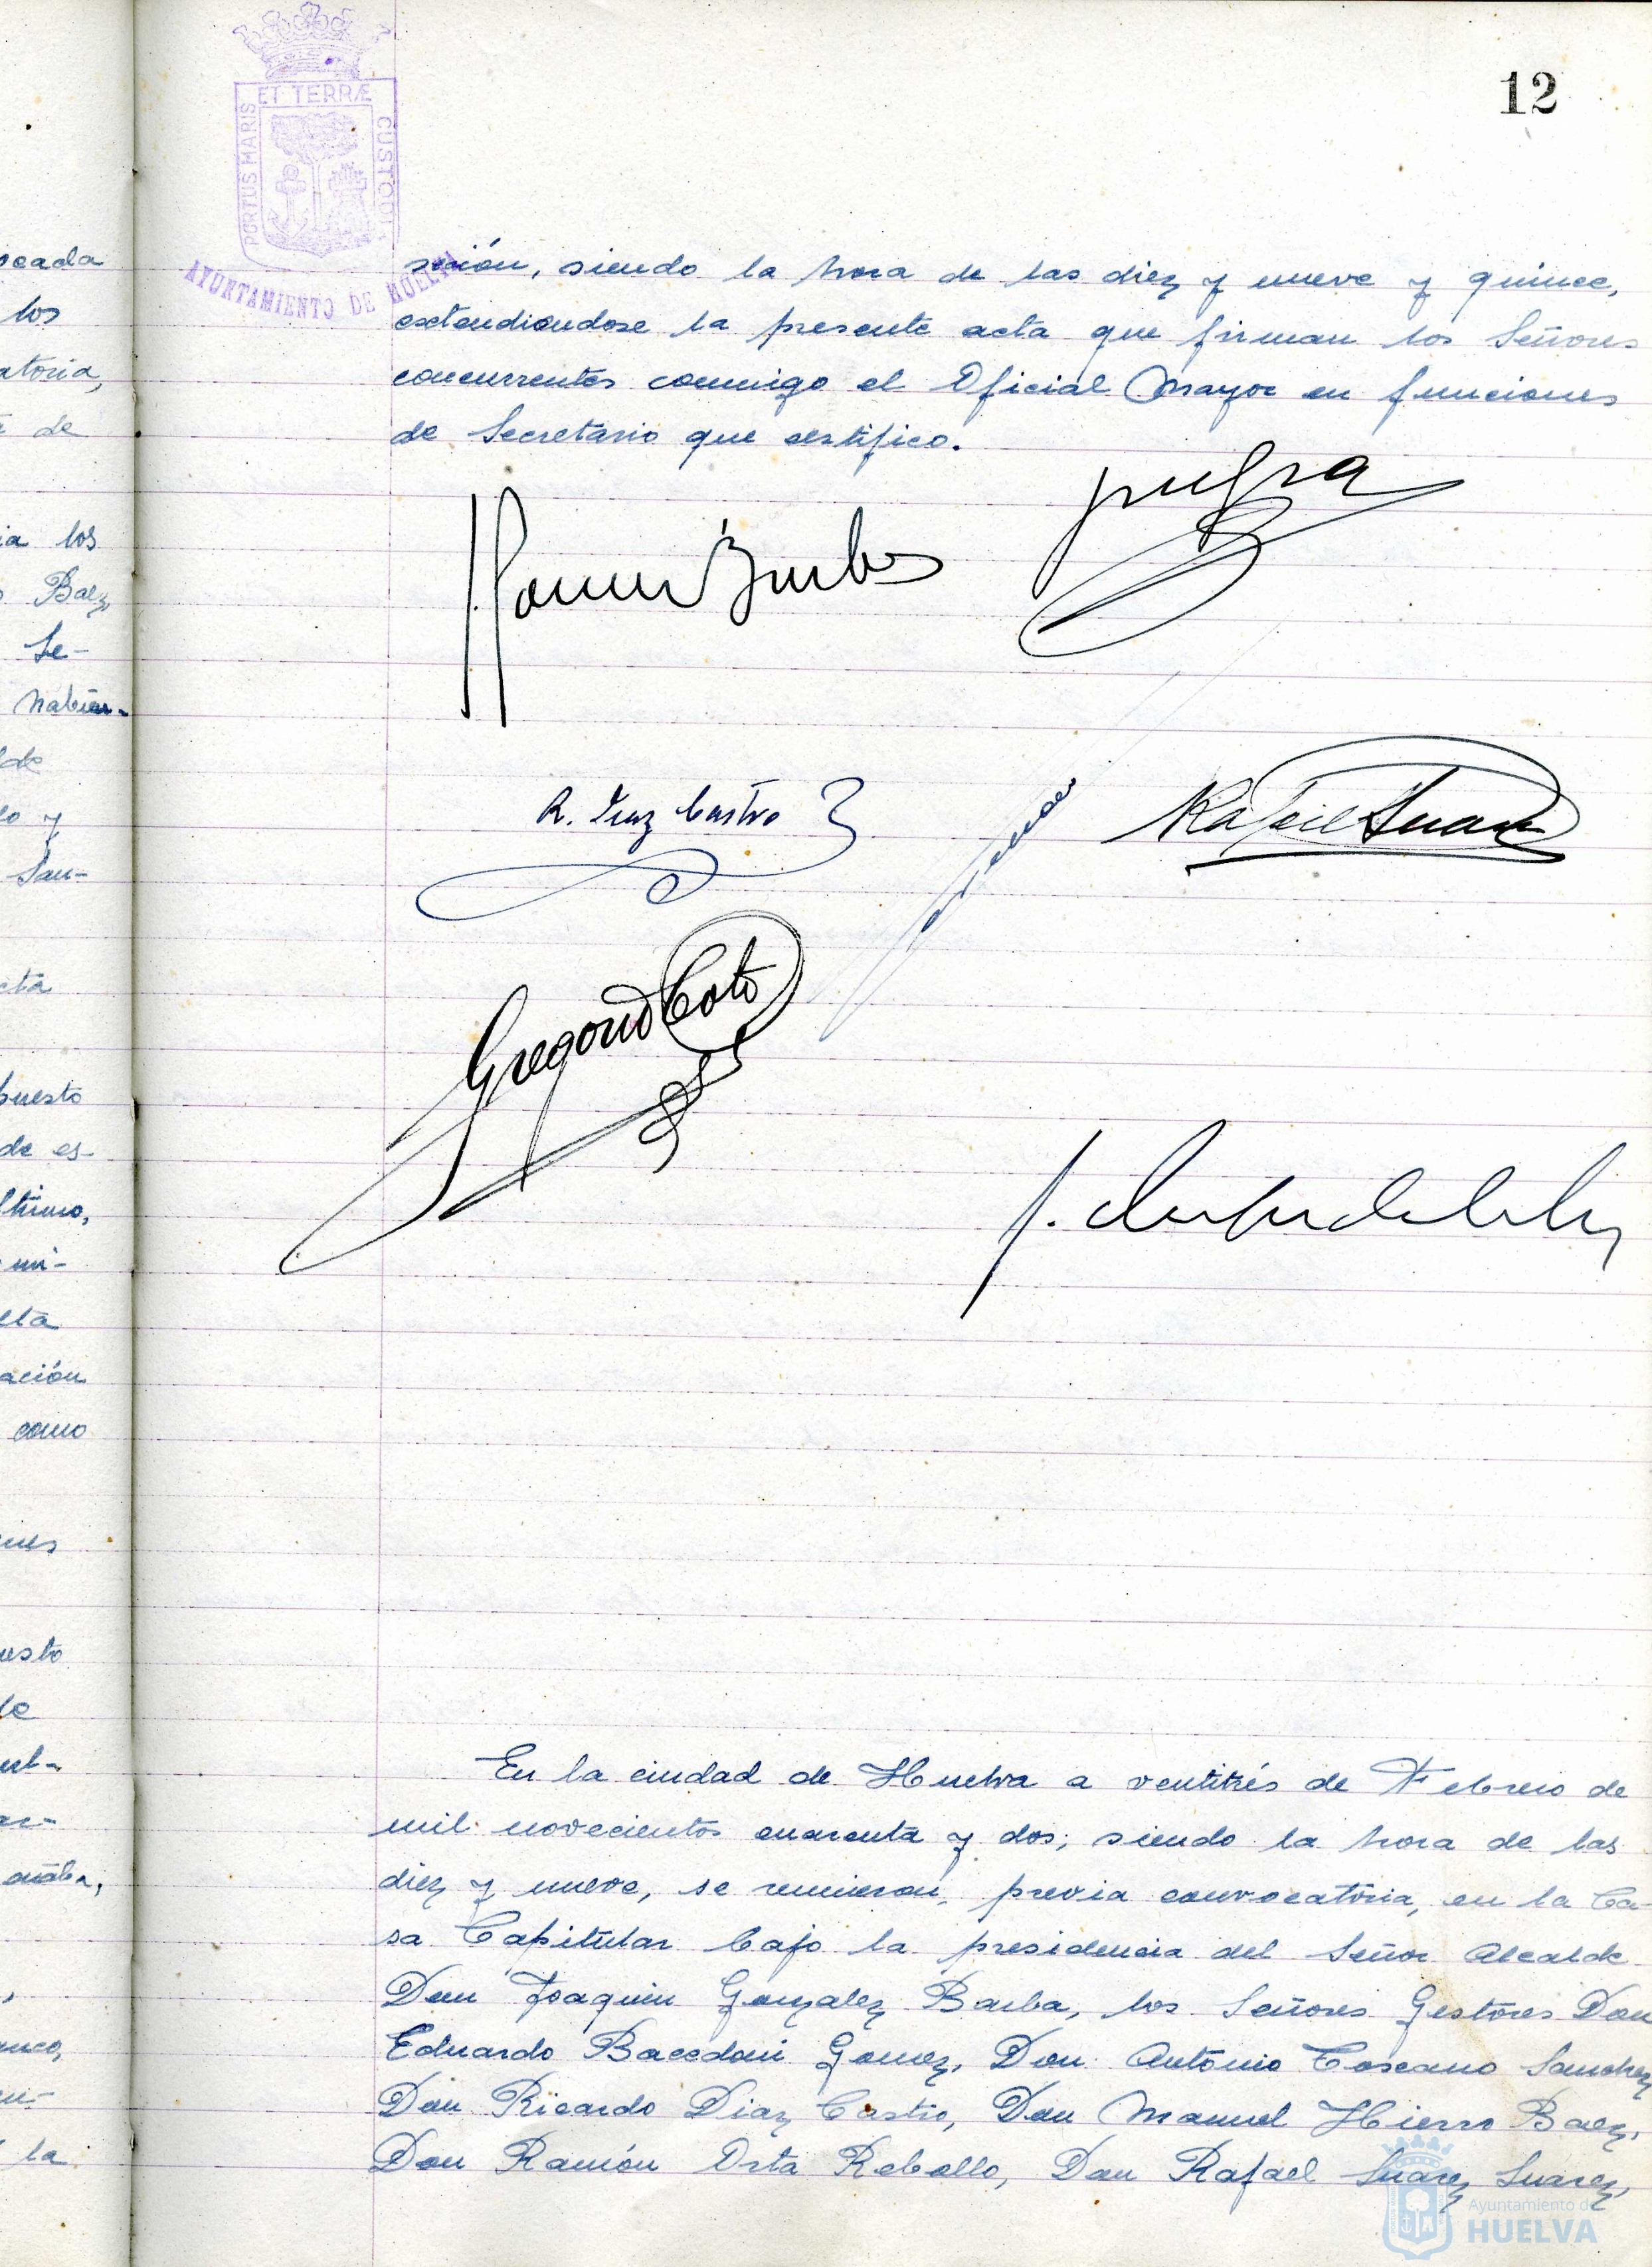 12
ET TERRÆ
PORTUS MARIS
CUSTODIA
AYUNTAMIENTO DE HUELVA
ocada
los
atoria,
de
ia los
Baez,
Se-
habien-
de
lo y
San-
cta
puesto
de es-
ltimo,
mi-
elta
ación
como
esto
de
la
sesión, siendo la hora de las diez y nueve y quince,
extendiendose la presente acta que firman los Señores
concurrentes conmigo el Oficial Mayor en funciones
de Secretario que certifico.
R. Diaz Castro
Rafael Suarez
Gregorio Coto
En la ciudad de Huelva a ventitrés de Febrero de
mil novecientos cuarenta y dos; siendo la hora de las
diez y nueve, se reunieron, previa convocatoria, en la Ca-
sa Capitular bajo la presidencia del Señor Alcalde
Don Joaquin Gonzalez Barba, los Señores Gestores Don
Eduardo Bacedoni Gomez, Don Antonio Toscano Sanchez
Don Ricardo Diaz Castro, Don Manuel Hierro Baez,
Don Ramón Orta Rebollo, Don Rafael Suarez Suarez,
Ayuntamiento de
HUELVA